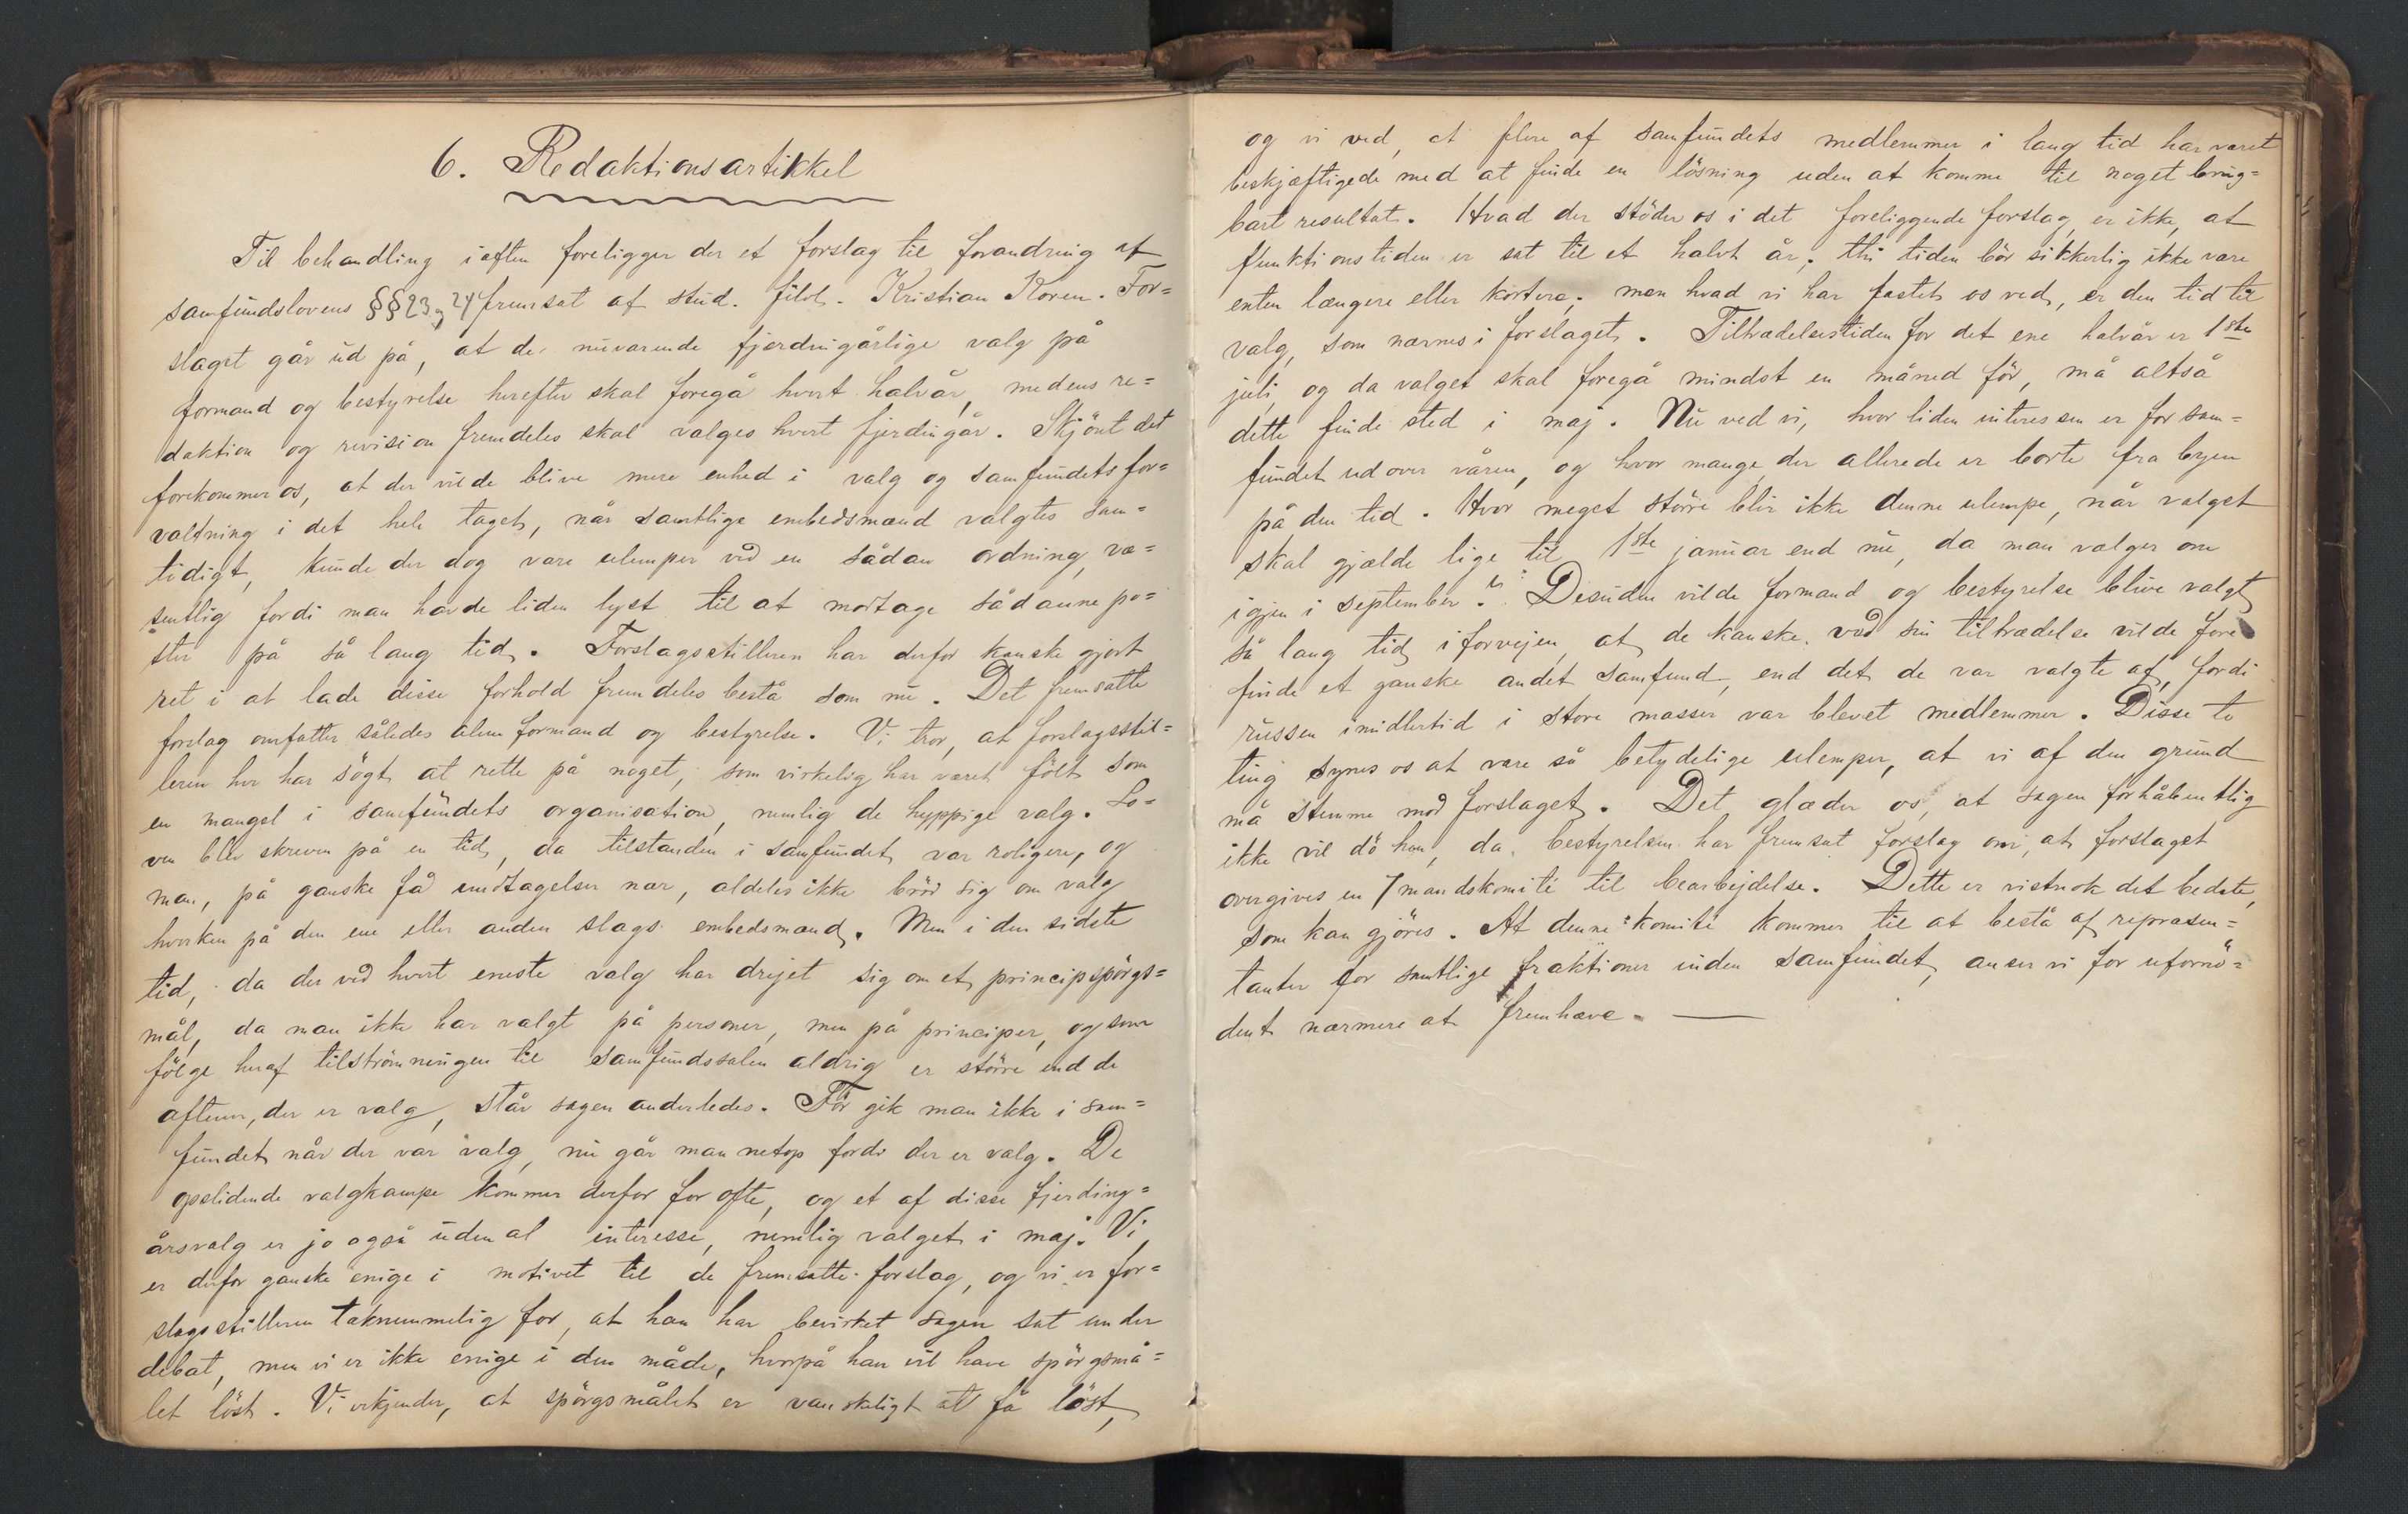 6. Redaktionsartikkel
Til behandling iaften foreligger der et forslag til forandring af
samfundslovens §§23 og 24 fremsat af stud. filol. Kristian Koren. For=
slaget går ud på, at de nuværende fjerdingårlige valg på
formand og bestyrelse herefter skal foregå hvert halvår, medens re=
daktion og revision fremdeles skal vælges hvert fjerdingår. Skjönt det
forekommer os, at der vilde blive mere enhed i valg og samfundets for=
valtning i det hele taget, når samtlige embedsmænd valgtes sam=
tidigt, kunde der dog være ulemper ved en sådan ordning, væ=
sentlig fordi man havde liden lyst til at modtage sådanne po=
ster på så lang tid. Forslagsstilleren har derfor kanske gjort
ret i at lade disse forhold fremdeles bestå som nu. Det fremsatte
forslag omfatter således alene formand og bestyrelse. Vi tror, at forslagsstil=
leren her har sögt at rette på noget, som virkelig har været fölt som
en mangel i samfundets organisation, nemlig de hyppige valg. Lo=
ven blev skreven på en tid, da tilstanden i samfundet var roligere, og
man, på ganske få undtagelser nær, aldeles ikke bröd sig om valg
hverken på den ene eller anden slags embedsmænd. Men i den sidste
tid, da der ved hvert eneste valg har drejet sig om et principspörgs=
mål, da man ikke har valgt på personer, men på principer, og som
fölge heraf tilströmningen til samfundssalen aldrig er större end de
aftener, der er valg, står sagen anderledes. För gik man ikke i sam=
fundet når der var valg, nu går man netop fordi der er valg. De
opslidende valgkampe kommer derfor for ofte, og et af disse fjerding=
årsvalg er jo også uden al interesse, nemlig valget i maj. Vi
er derfor ganske enige i motivet til de fremsatte forslag, og vi er for=
slagsstilleren taknemmelig for, at han har bevirket sagen sat under
debat, men vi er ikke enige i den måde, hvorpå han vil have spörgsmå=
let löst. Vi erkjender, at spörgsmålet er vanskeligt at få löst,
og vi ved, at flere af samfundets medlemmer i lang tid har været
beskjæftigede med at finde en lösning uden at komme til noget brug=
bart resultat. Hvad der stöder os i det foreliggende forslag, er ikke, at
funktionstiden er sat til et halvt år; thi tiden bör sikkerlig ikke være
enten længere eller kortere; men hvad vi har fæstet os ved, er den tid til
valg, som nævnes i forslaget. Tiltrædelsestiden for det ene halvår er 1ste
juli, og da valget skal foregå mindst en måned för, må altså
dette finde sted i maj. Nu ved vi, hvor liden interessen er for sam=
fundet udover våren, og hvor mange der allerede er borte fra byen
på den tid. Hvor meget större blir ikke denne ulempe, når valget
skal gjælde lige til 1ste januar end nu, da man vælger om
igjen i september? Desuden vilde formand og bestyrelse blive valgt
så lang tid i forvejen, at de kanske ved sin tiltrædelse vilde fore
finde et ganske andet samfund, end det de var valgte af, fordi
russen imidlertid i store masser var blevet medlemmer. Disse to
ting synes os at være så betydelige ulemper, at vi af den grund
må stemme mod forslaget. Det glæder os, at sagen forhåbentlig
ikke vil dö hen, da bestyrelsen har fremsat forslag om, at forslaget
overgives en 7mandskomité til bearbejdelse. Dette er vistnok det bedste,
som kan gjöres. At denne komité kommer til at bestå af repræsen=
tanter for samtlige fraktioner inden samfundet, anser vi for uforнö=
dent nærmere at fremhæve. —